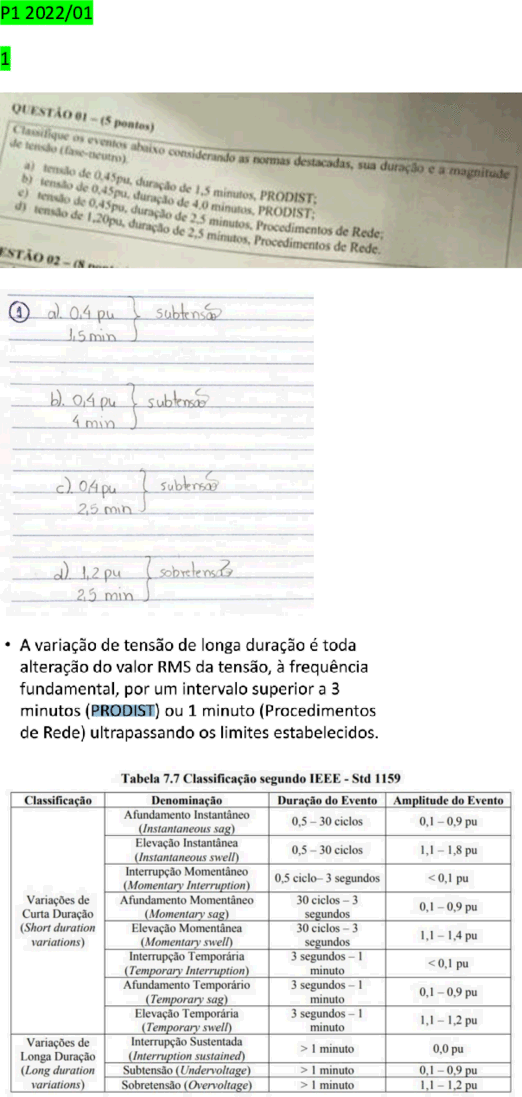 P1 2022/01
1
QUESTÃO 01 – (5 pontos)
Classifique os eventos abaixo considerando as normas destacadas, sua duração e a magnitude
de tensão (fase-neutro).
a) tensão de 0,45pu, duração de 1,5 minutos, PRODIST;
b) tensão de 0,45pu, duração de 4,0 minutos, PRODIST;
c) tensão de 0,45pu, duração de 2,5 minutos, Procedimentos de Rede;
d) tensão de 1,20pu, duração de 2,5 minutos, Procedimentos de Rede.
ESTÃO 02 – (8
1 a). 0,4 pu } subtensão
1,5 min
b). 0,4 pu } subtensão
4 min
c). 0,4 pu } subtensão
2,5 min
d). 1,2 pu } sobretensão
2,5 min
• A variação de tensão de longa duração é toda
alteração do valor RMS da tensão, à frequência
fundamental, por um intervalo superior a 3
minutos (PRODIST) ou 1 minuto (Procedimentos
de Rede) ultrapassando os limites estabelecidos.
Tabela 7.7 Classificação segundo IEEE - Std 1159
Classificação Denominação Duração do Evento Amplitude do Evento
Variações de
Curta Duração
(Short duration
variations)
Afundamento Instantâneo
(Instantaneous sag)
0,5 – 30 ciclos 0,1 – 0,9 pu
Elevação Instantânea
(Instantaneous swell)
0,5 – 30 ciclos 1,1 – 1,8 pu
Interrupção Momentâneo
(Momentary Interruption)
0,5 ciclo– 3 segundos < 0,1 pu
Afundamento Momentâneo
(Momentary sag)
30 ciclos – 3
segundos
0,1 – 0,9 pu
Elevação Momentânea
(Momentary swell)
30 ciclos – 3
segundos
1,1 – 1,4 pu
Interrupção Temporária
(Temporary Interruption)
3 segundos – 1
minuto
< 0,1 pu
Afundamento Temporário
(Temporary sag)
3 segundos – 1
minuto
0,1 – 0,9 pu
Elevação Temporária
(Temporary swell)
3 segundos – 1
minuto
1,1 – 1,2 pu
Variações de
Longa Duração
(Long duration
variations)
Interrupção Sustentada
(Interruption sustained)
> 1 minuto 0,0 pu
Subtensão (Undervoltage) > 1 minuto 0,1 – 0,9 pu
Sobretensão (Overvoltage) > 1 minuto 1,1 – 1,2 pu